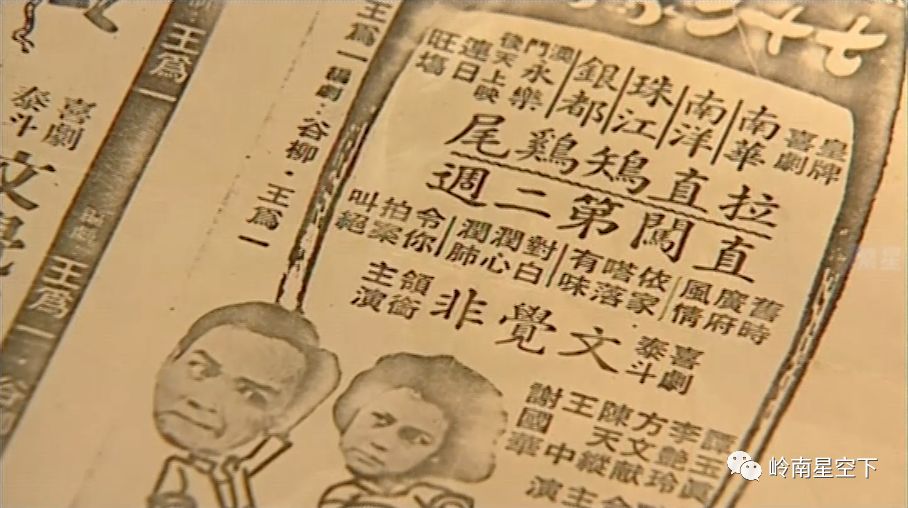 七十二
皇牌
喜劇
南華
南洋
珠江
銀都
澳門永樂
後天上映
連日
旺場
拉直雉鷄尾
直闖第二週
舊時
廣府
風情
依家
嗒落
有味
對白
潤心
潤肺
令你
拍案
叫絕
喜劇
泰斗
文覺非
領銜
主演
譚玉真
李艷玲
方文献
陳天縱
王中
謝國華
主演
王爲一 編劇:谷柳·王爲一
王爲一
編劇 王爲一·谷
喜劇
泰斗
文覺
岭南星空下